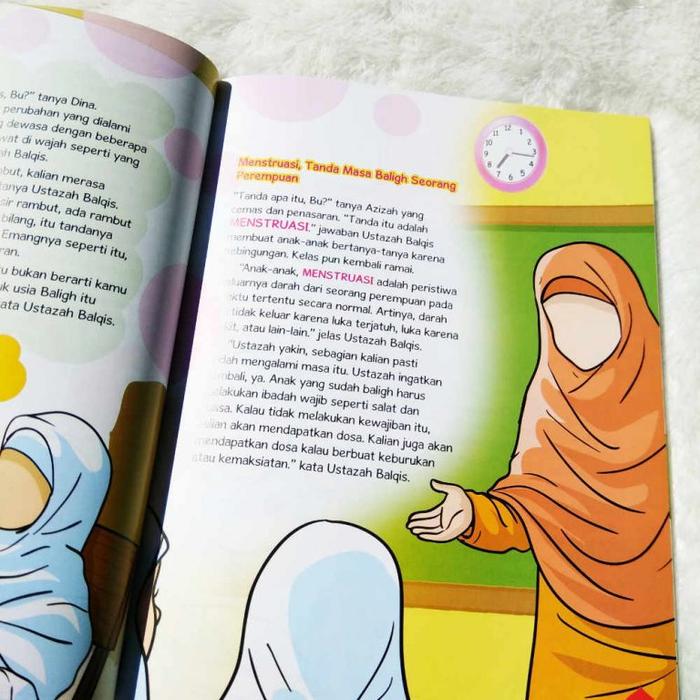 s, Bu?" tanya Dina.
perubahan yang dialami
dewasa dengan beberapa
wat di wajah seperti yang
ah Balqis.
but, kalian merasa
tanya Ustazah Balqis.
sir rambut, ada rambut
bilang, itu tandanya
Emangnya seperti itu,
ran.
u bukan berarti kamu
uk usia Baligh itu
kata Ustazah Balqis.
Menstruasi, Tanda Masa Baligh Seorang
Perempuan
"Tanda apa itu, Bu?" tanya Azizah yang
cemas dan penasaran. "Tanda itu adalah
MENSTRUASI." jawaban Ustazah Balqis
membuat anak-anak bertanya-tanya karena
kebingungan. Kelas pun kembali ramai.
"Anak-anak, MENSTRUASI adalah peristiwa
keluarnya darah dari seorang perempuan pada
waktu tertentu secara normal. Artinya, darah
tidak keluar karena luka terjatuh, luka karena
kit, atau lain-lain." jelas Ustazah Balqis.
"Ustazah yakin, sebagian kalian pasti
dah mengalami masa itu. Ustazah ingatkan
mbali, ya. Anak yang sudah baligh harus
melakukan ibadah wajib seperti salat dan
uasa. Kalau tidak melakukan kewajiban itu,
kalian akan mendapatkan dosa. Kalian juga akan
mendapatkan dosa kalau berbuat keburukan
atau kemaksiatan." kata Ustazah Balqis.
12
1
2
3
4
5
6
7
8
9
10
11